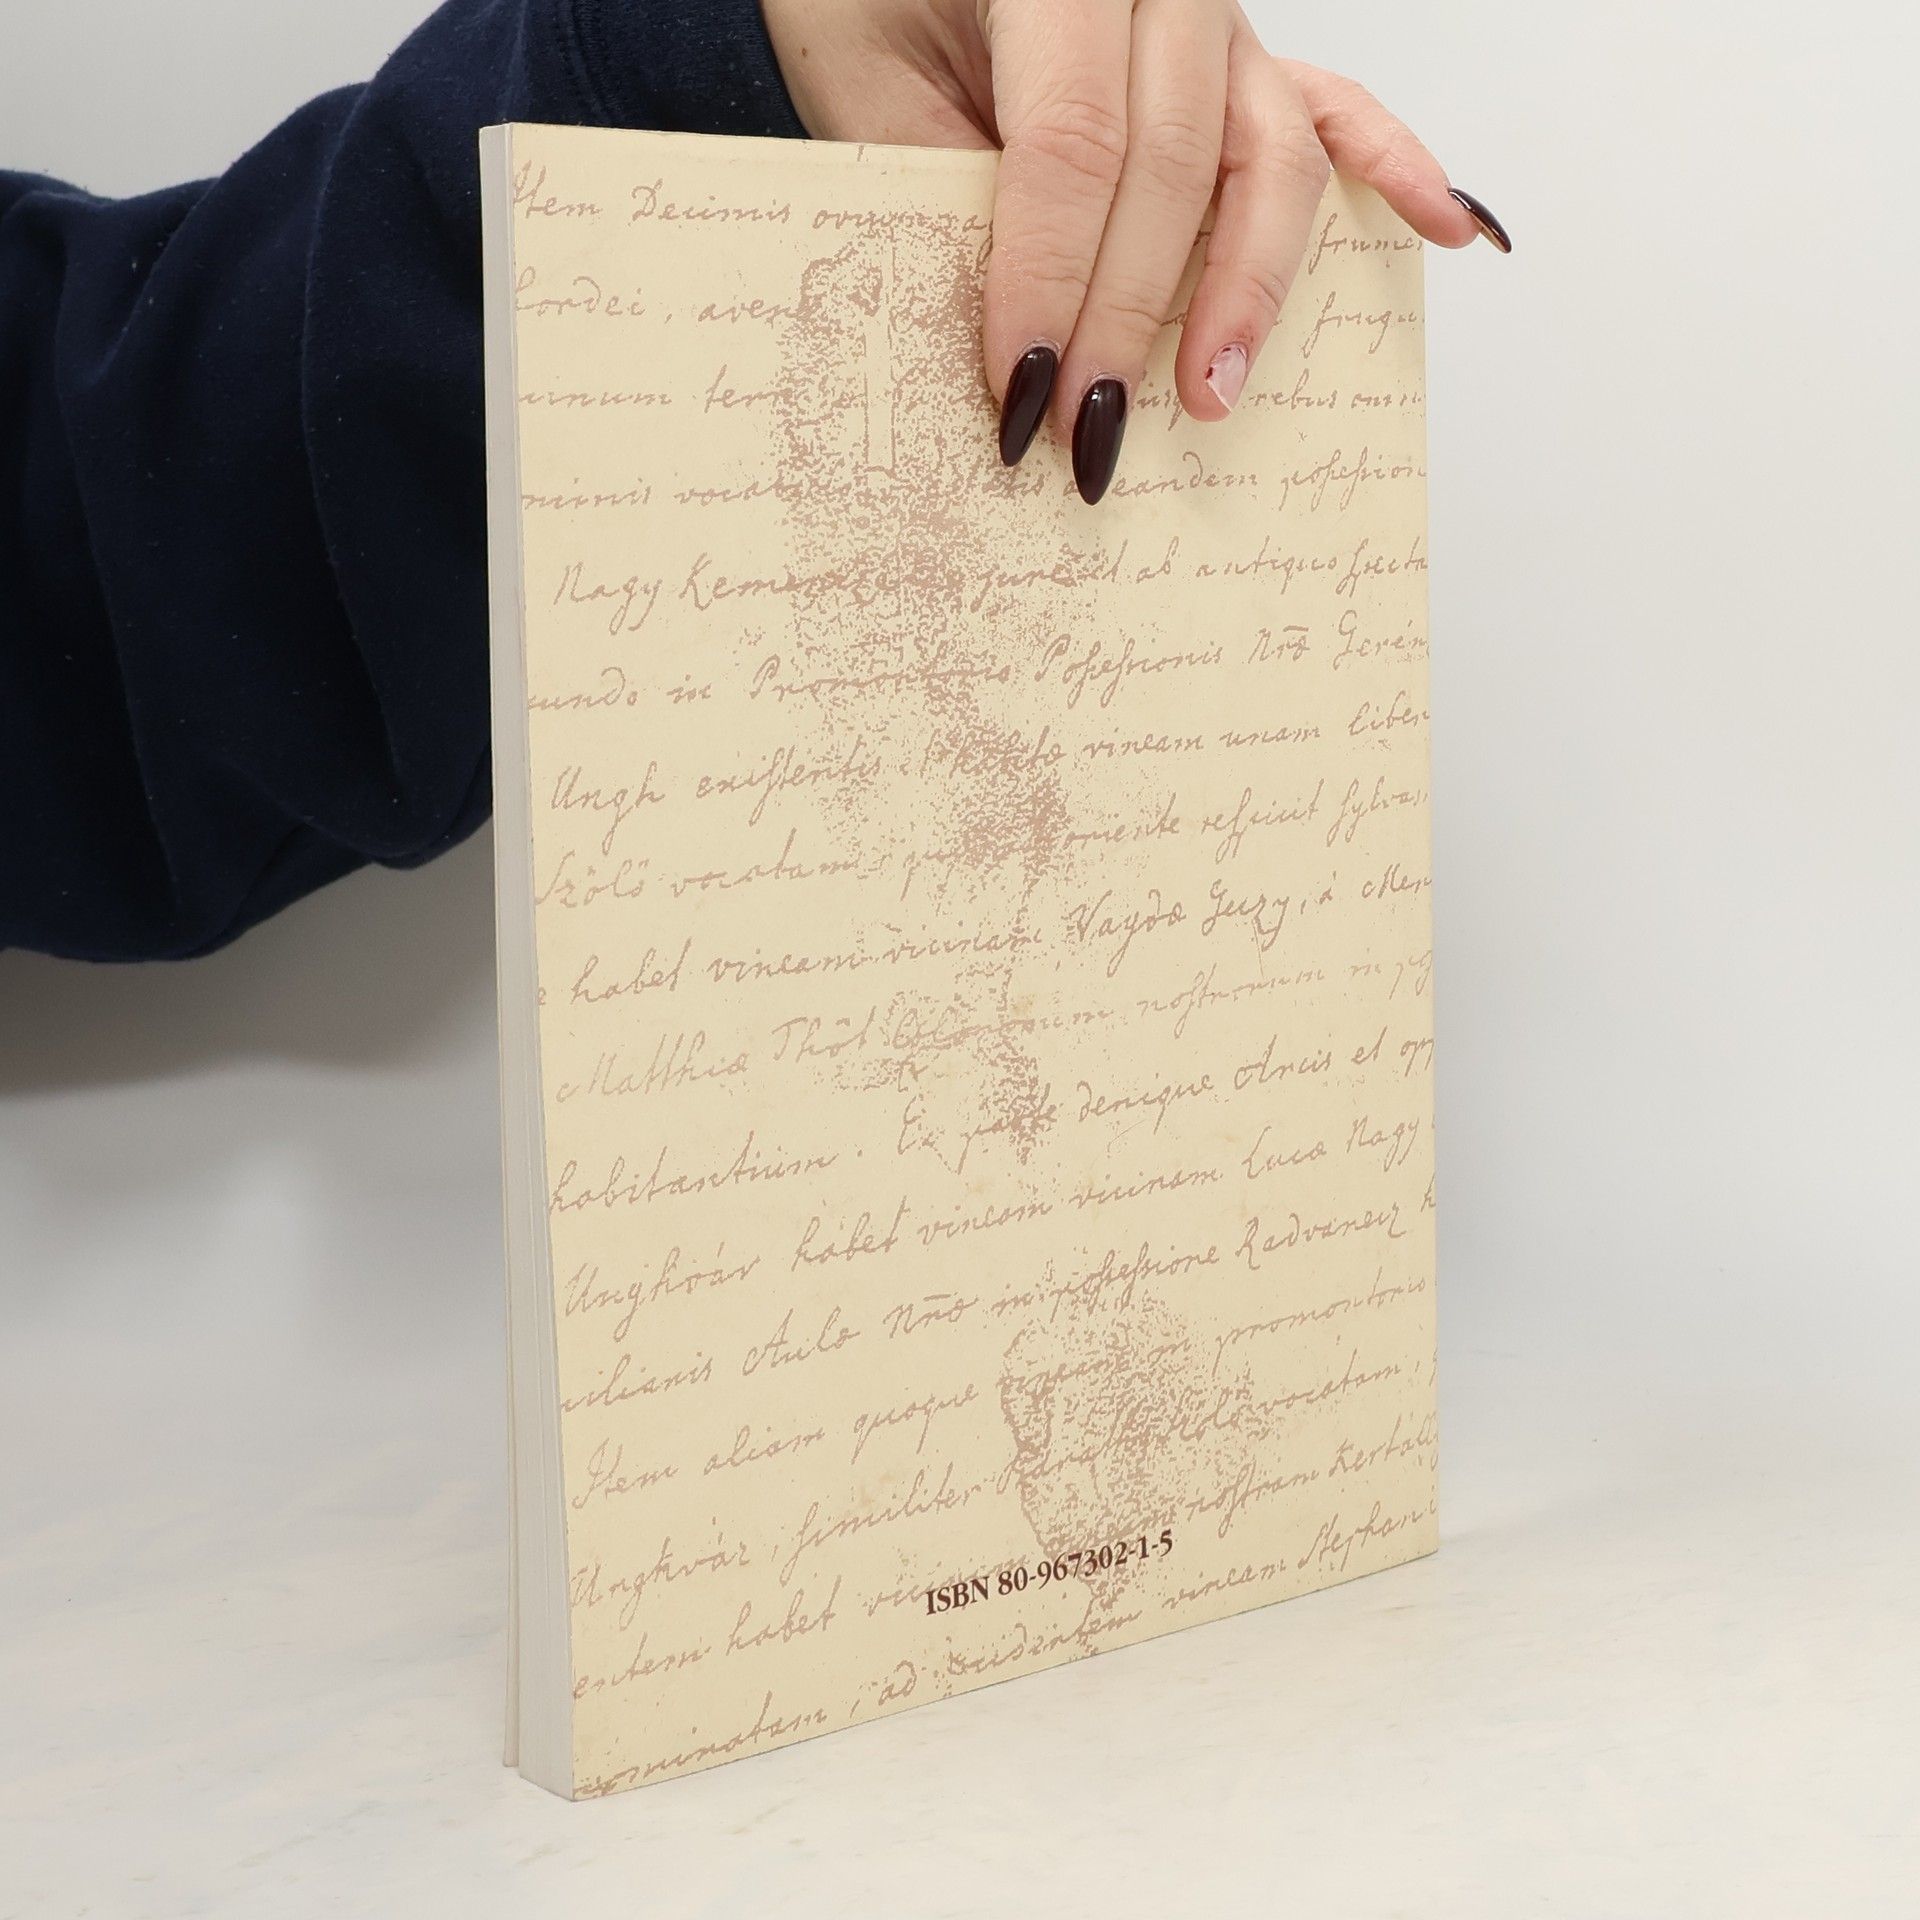 Item Decimis frumen
hordei, aven frugu
uinum terr rebus omni
minis vocat eandem possession
Nagy Kemen jure et ab antiquo specta
undo in Promontorio Possessionis Nrae Gerén
Ungh existentis et habitae vineam unam liber
Szölö vocatam oriente respicit sylvas
e habet vineam vicinam Vaydae Guzy, à Mer
Matthiae Thót Colonorum nostrorum in
habitantium. Ex parte denique Arcis et opp
Unghvár habet vineam vicinam Lucae Nagy
ilianis Aulae Nrae in possessione Radvancz h
Item aliam quoque vineam in promontorio
Unghvár, similiter vocatam,
entem habet vicinam vineam nostram Kertall
minatam, ad vineam Stephani
ISBN 80-967302-1-5